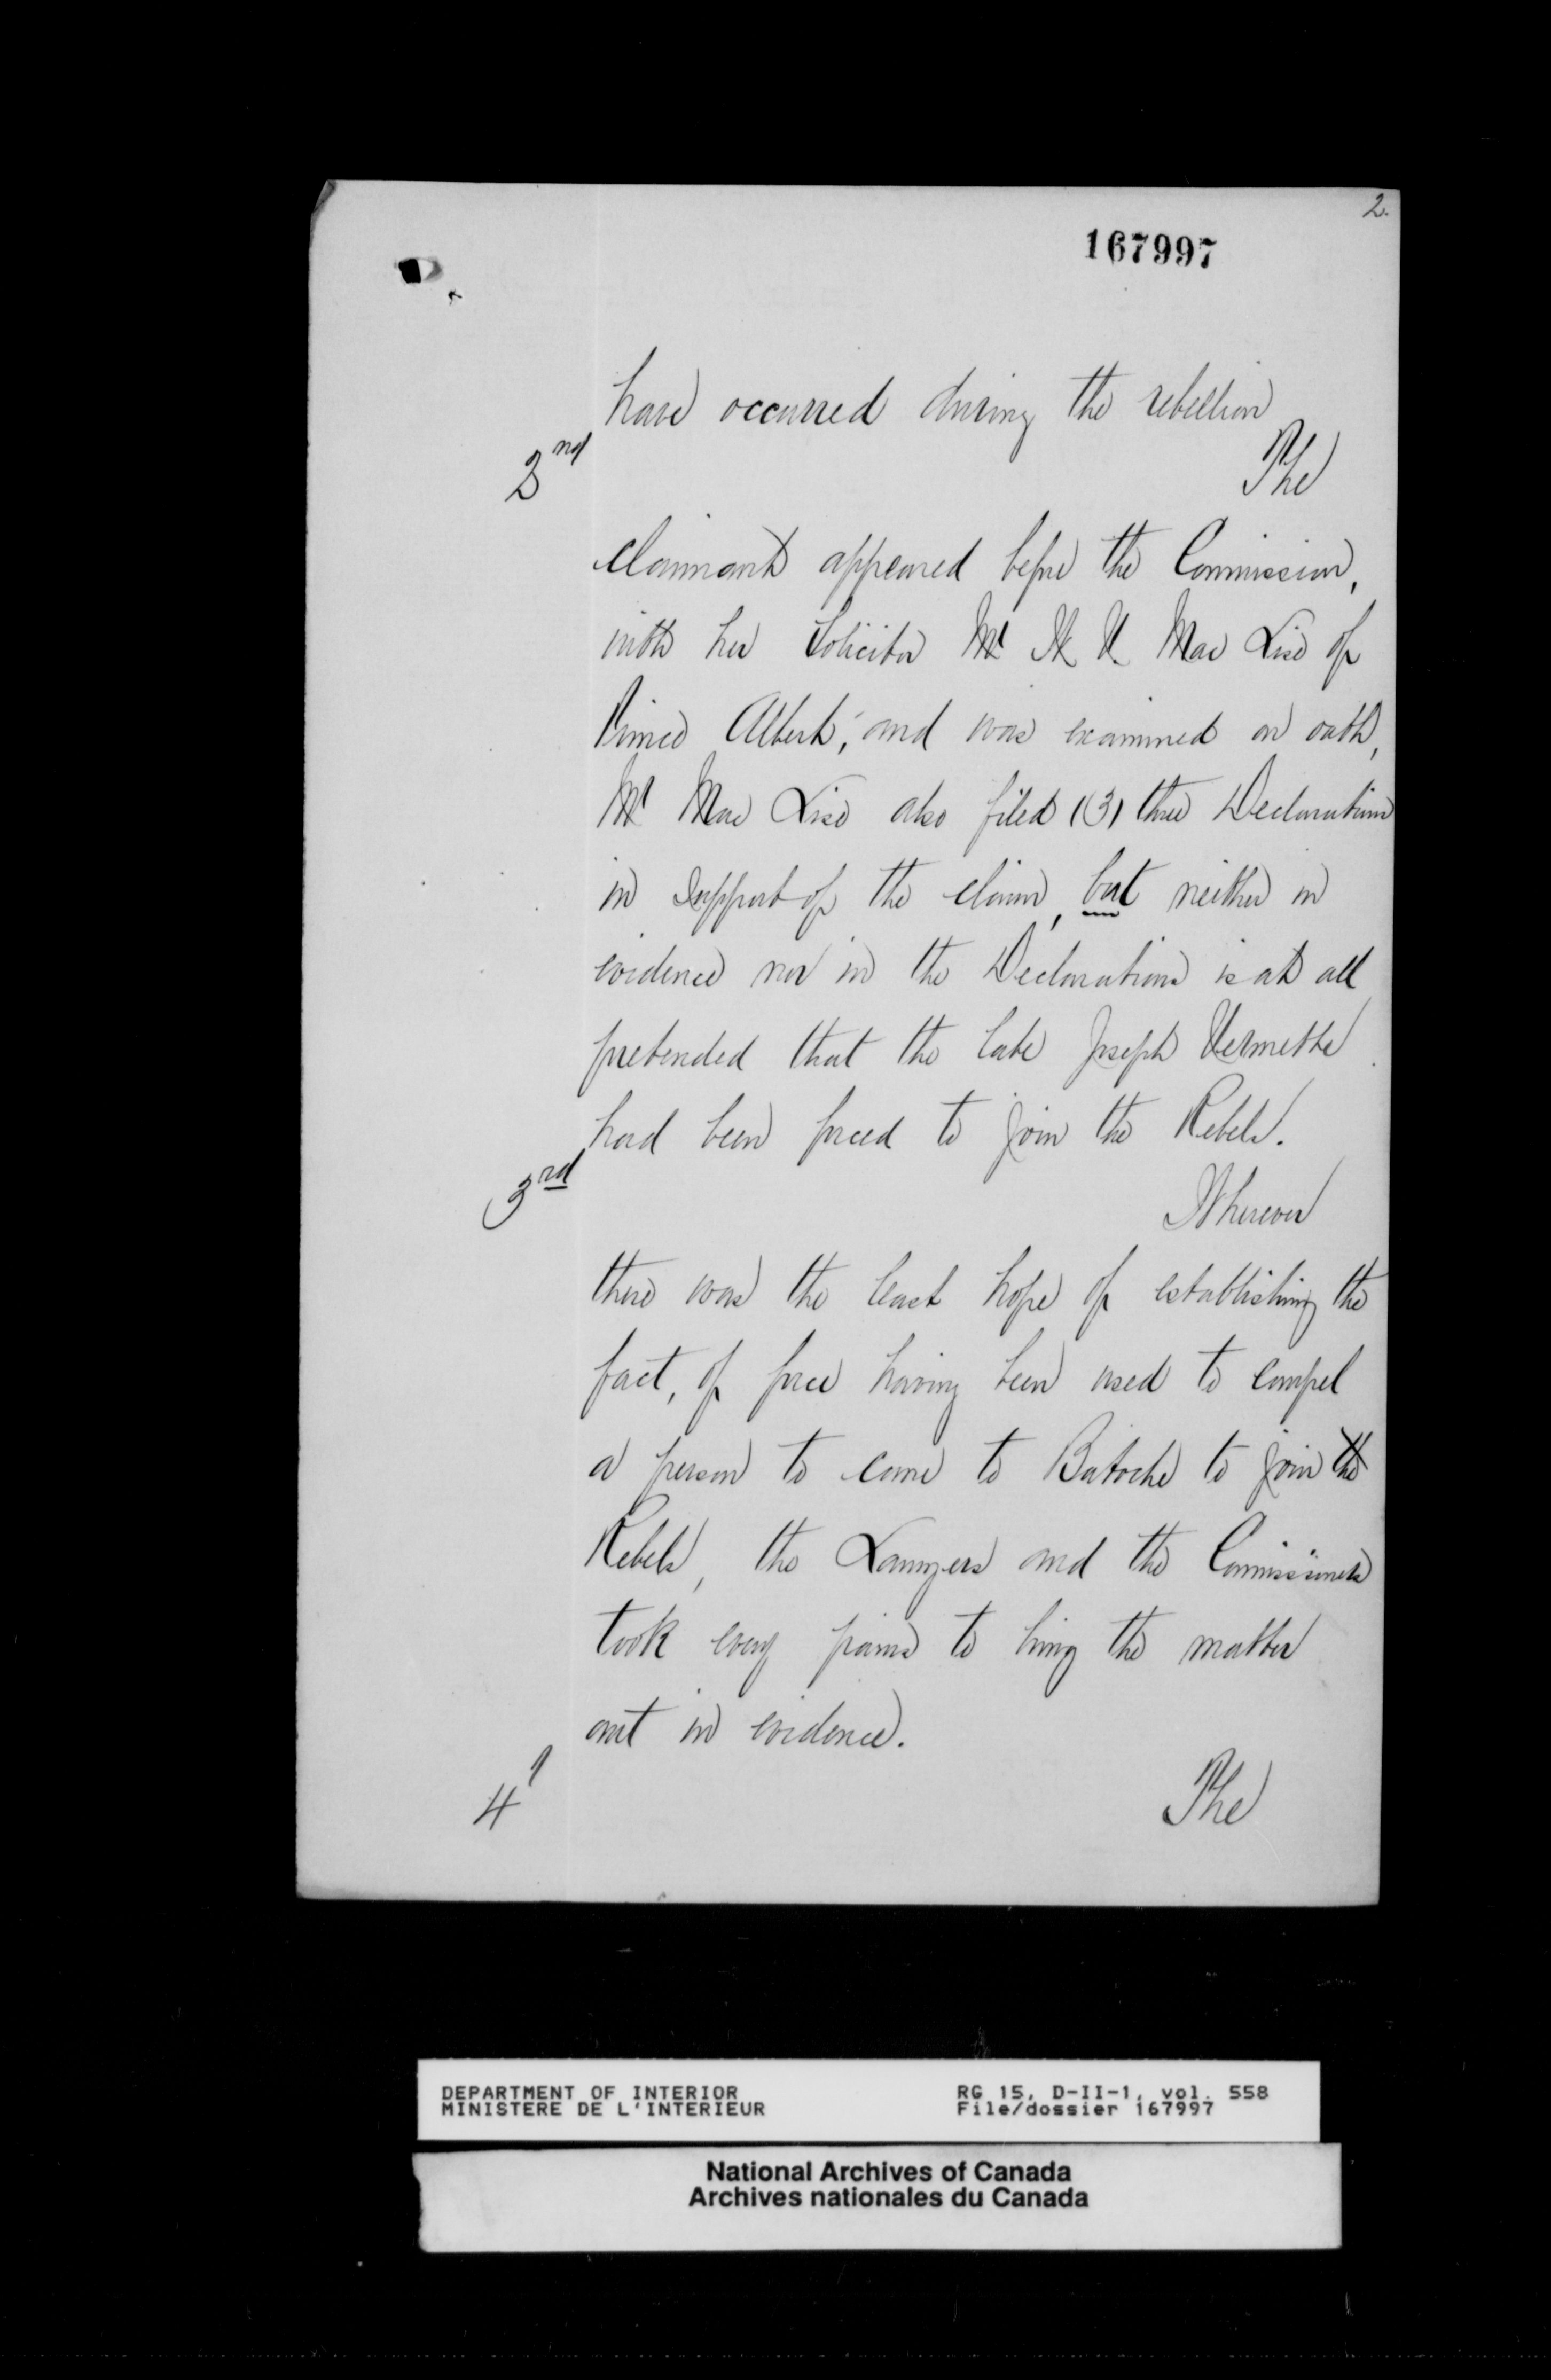 2.
167997
have occurred during the rebellion
2nd The
claimant appeared before the Commission,
with her Solicitor Mr Mac Lise of
Prince Albert, and was examined on oath,
Mr Mac Lise also filed (3) three Declarations
in support of the claim, but neither in
evidence nor in the Declarations is at all
pretended that the late Joseph Vermette
had been forced to join the Rebels.
3rd Wherever
there was the least hope of establishing the
fact, of force having been used to compel
a person to come to Batoche to join the
Rebels, the Lawyers and the Commissioners
took every pains to bring the matter
out in evidence.
4 The
DEPARTMENT OF INTERIOR
MINISTERE DE L'INTERIEUR
RG 15, D-II-1, vol. 558
File/dossier 167997
National Archives of Canada
Archives nationales du Canada